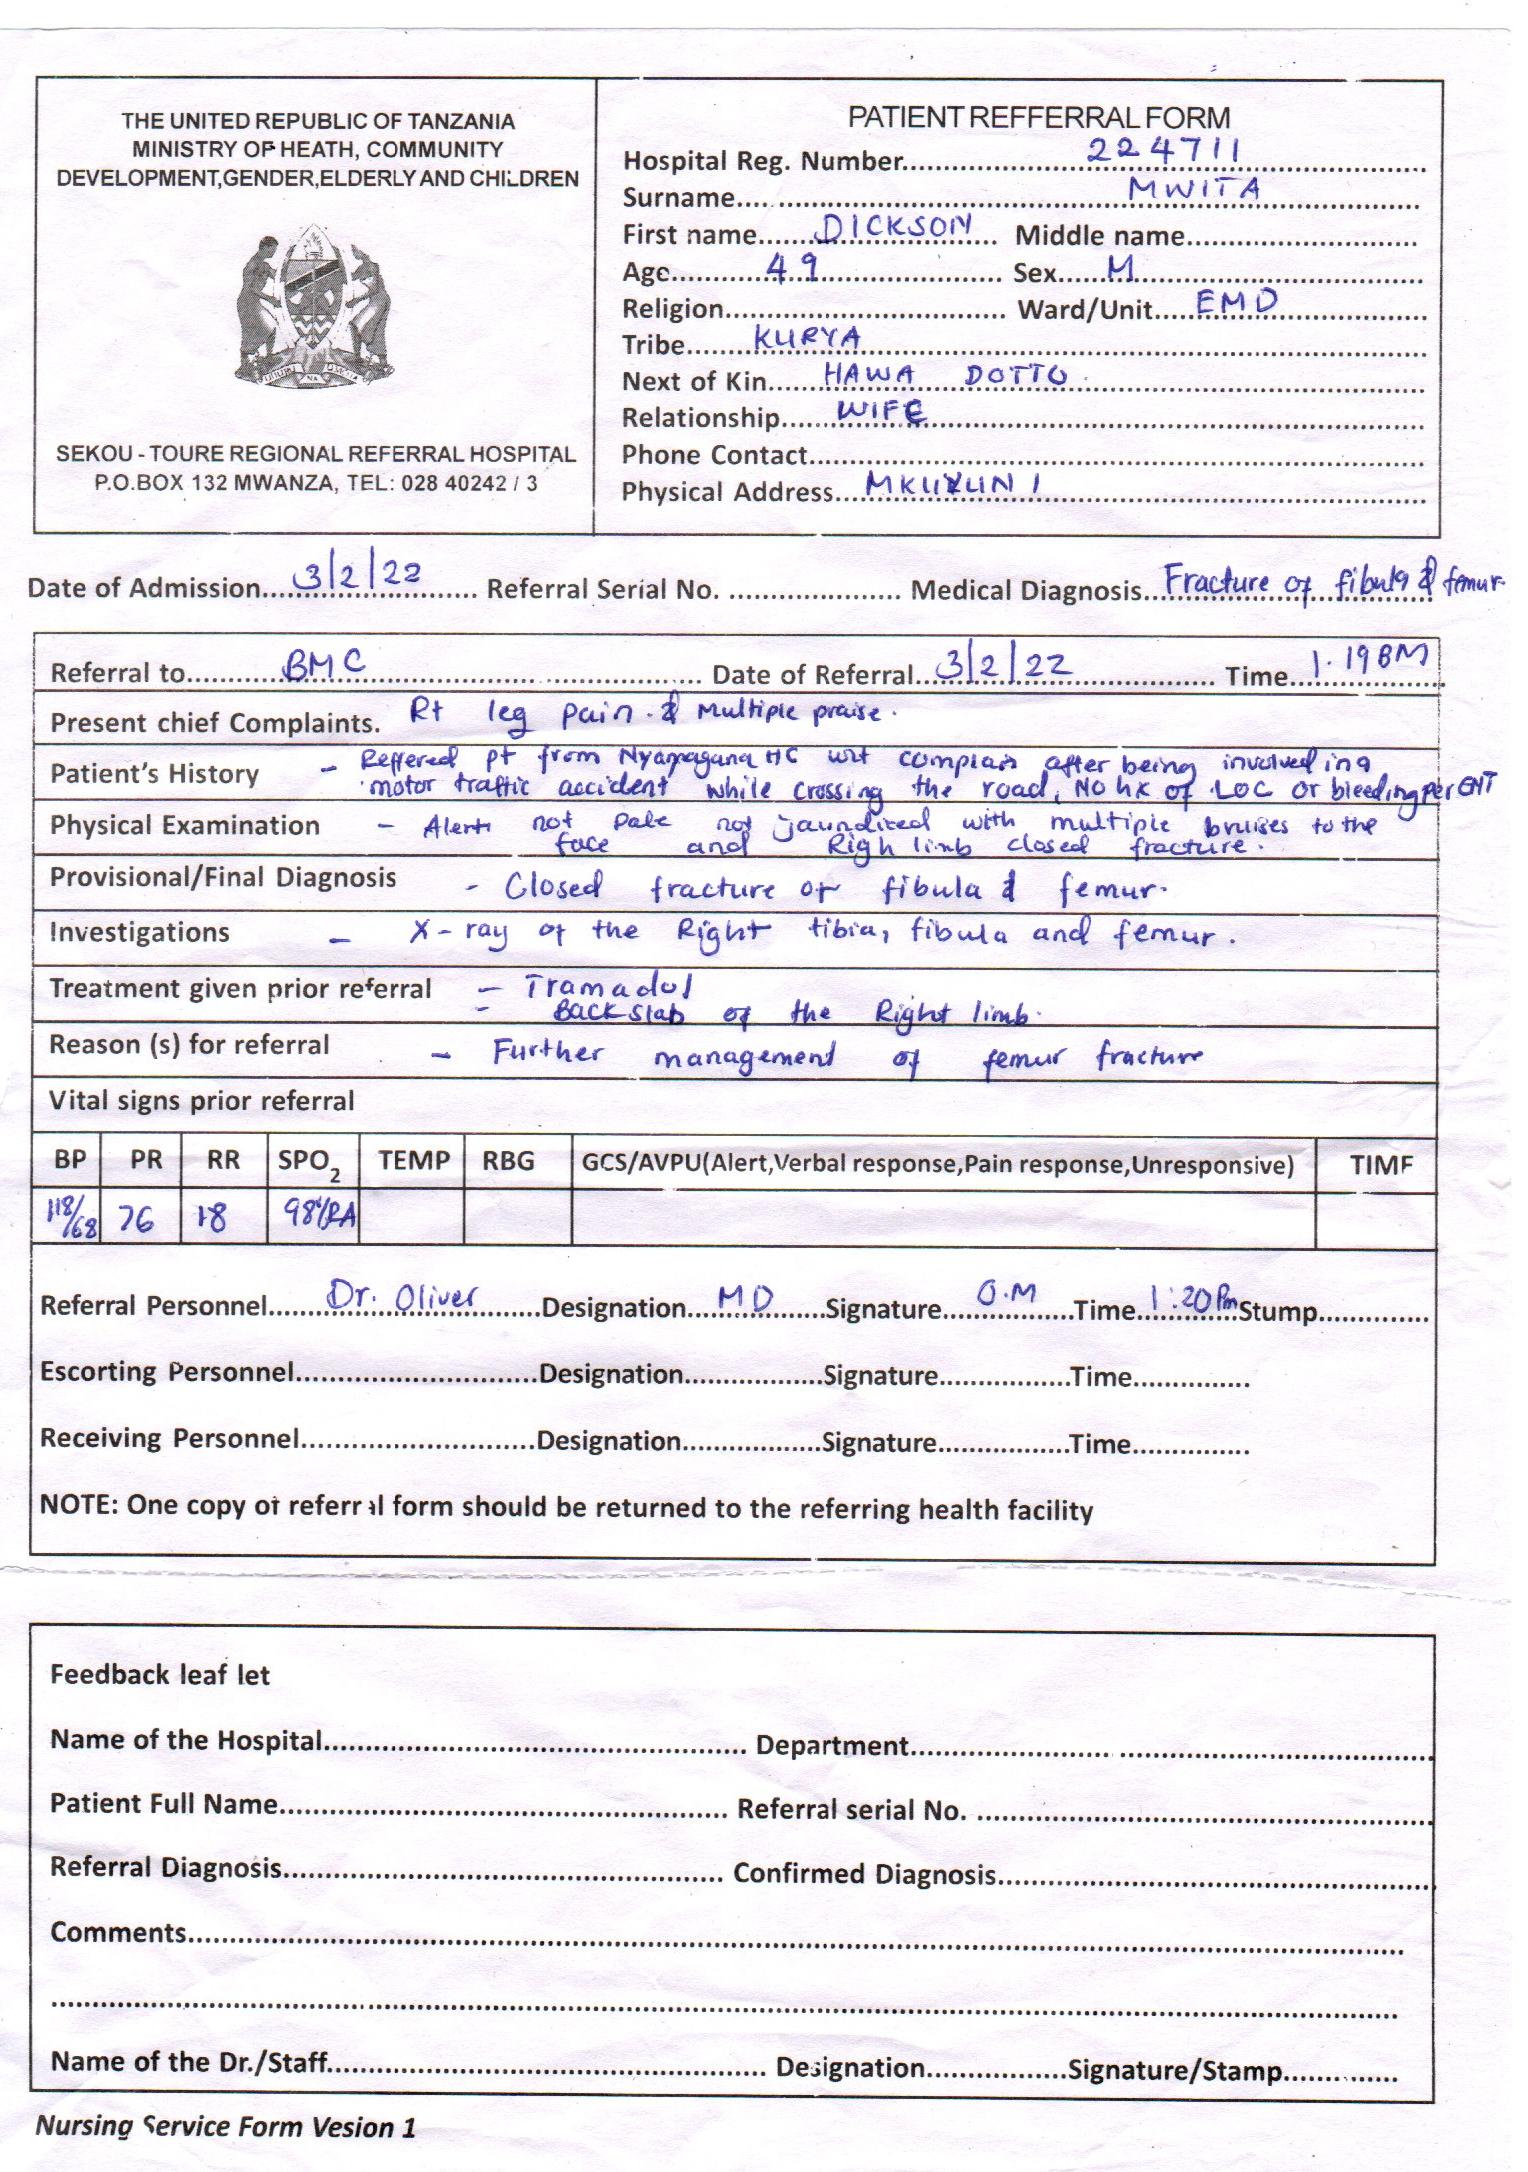 THE UNITED REPUBLIC OF TANZANIA
MINISTRY OF HEATH, COMMUNITY
DEVELOPMENT,GENDER,ELDERLY AND CHILDREN
SEKOU - TOURE REGIONAL REFERRAL HOSPITAL
P.O.BOX 132 MWANZA, TEL: 028 40242 / 3
PATIENT REFFERRAL FORM
Hospital Reg. Number 224711
Surname MWITA
First name DICKSON Middle name
Age 49 Sex M
Religion Ward/Unit EMD
Tribe KURYA
Next of Kin HAWA DOTTO
Relationship WIFE
Phone Contact
Physical Address MKUYUNI
Date of Admission 3/2/22 Referral Serial No. Medical Diagnosis Fracture of fibula & femur
Referral to BMC Date of Referral 3/2/22 Time 1.19 PM
Present chief Complaints. Rt leg pain & Multiple praise.
Patient's History - Reffered pt from Nyamagana HC wit complain after being involved in a
motor traffic accident while crossing the road, No hx of LOC or bleeding per ENT
Physical Examination - Alert not Pale not jaundiced with multiple bruises to the
face and Righ limb closed fracture.
Provisional/Final Diagnosis - Closed fracture of fibula & femur.
Investigations - X-ray of the Right tibia, fibula and femur.
Treatment given prior referral - Tramadol
- Back slab of the Right limb.
Reason (s) for referral - Further management of femur fracture
Vital signs prior referral
BP PR RR SPO2 TEMP RBG GCS/AVPU(Alert,Verbal response,Pain response,Unresponsive) TIMF
118/68 76 18 98%RA
Referral Personnel Dr. Oliver Designation MD Signature O.M Time 1:20 Pm Stump
Escorting Personnel Designation Signature Time
Receiving Personnel Designation Signature Time
NOTE: One copy of referral form should be returned to the referring health facility
Feedback leaf let
Name of the Hospital Department
Patient Full Name Referral serial No.
Referral Diagnosis Confirmed Diagnosis
Comments
Name of the Dr./Staff Designation Signature/Stamp
Nursing Service Form Vesion 1